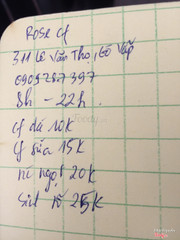 Rose cf
311 Lê Văn Thọ, Gò Vấp
0909787397
8h - 22h.
cf đá 10k
cf sữa 15k
nc ngọt 20k
sinh tố 25k